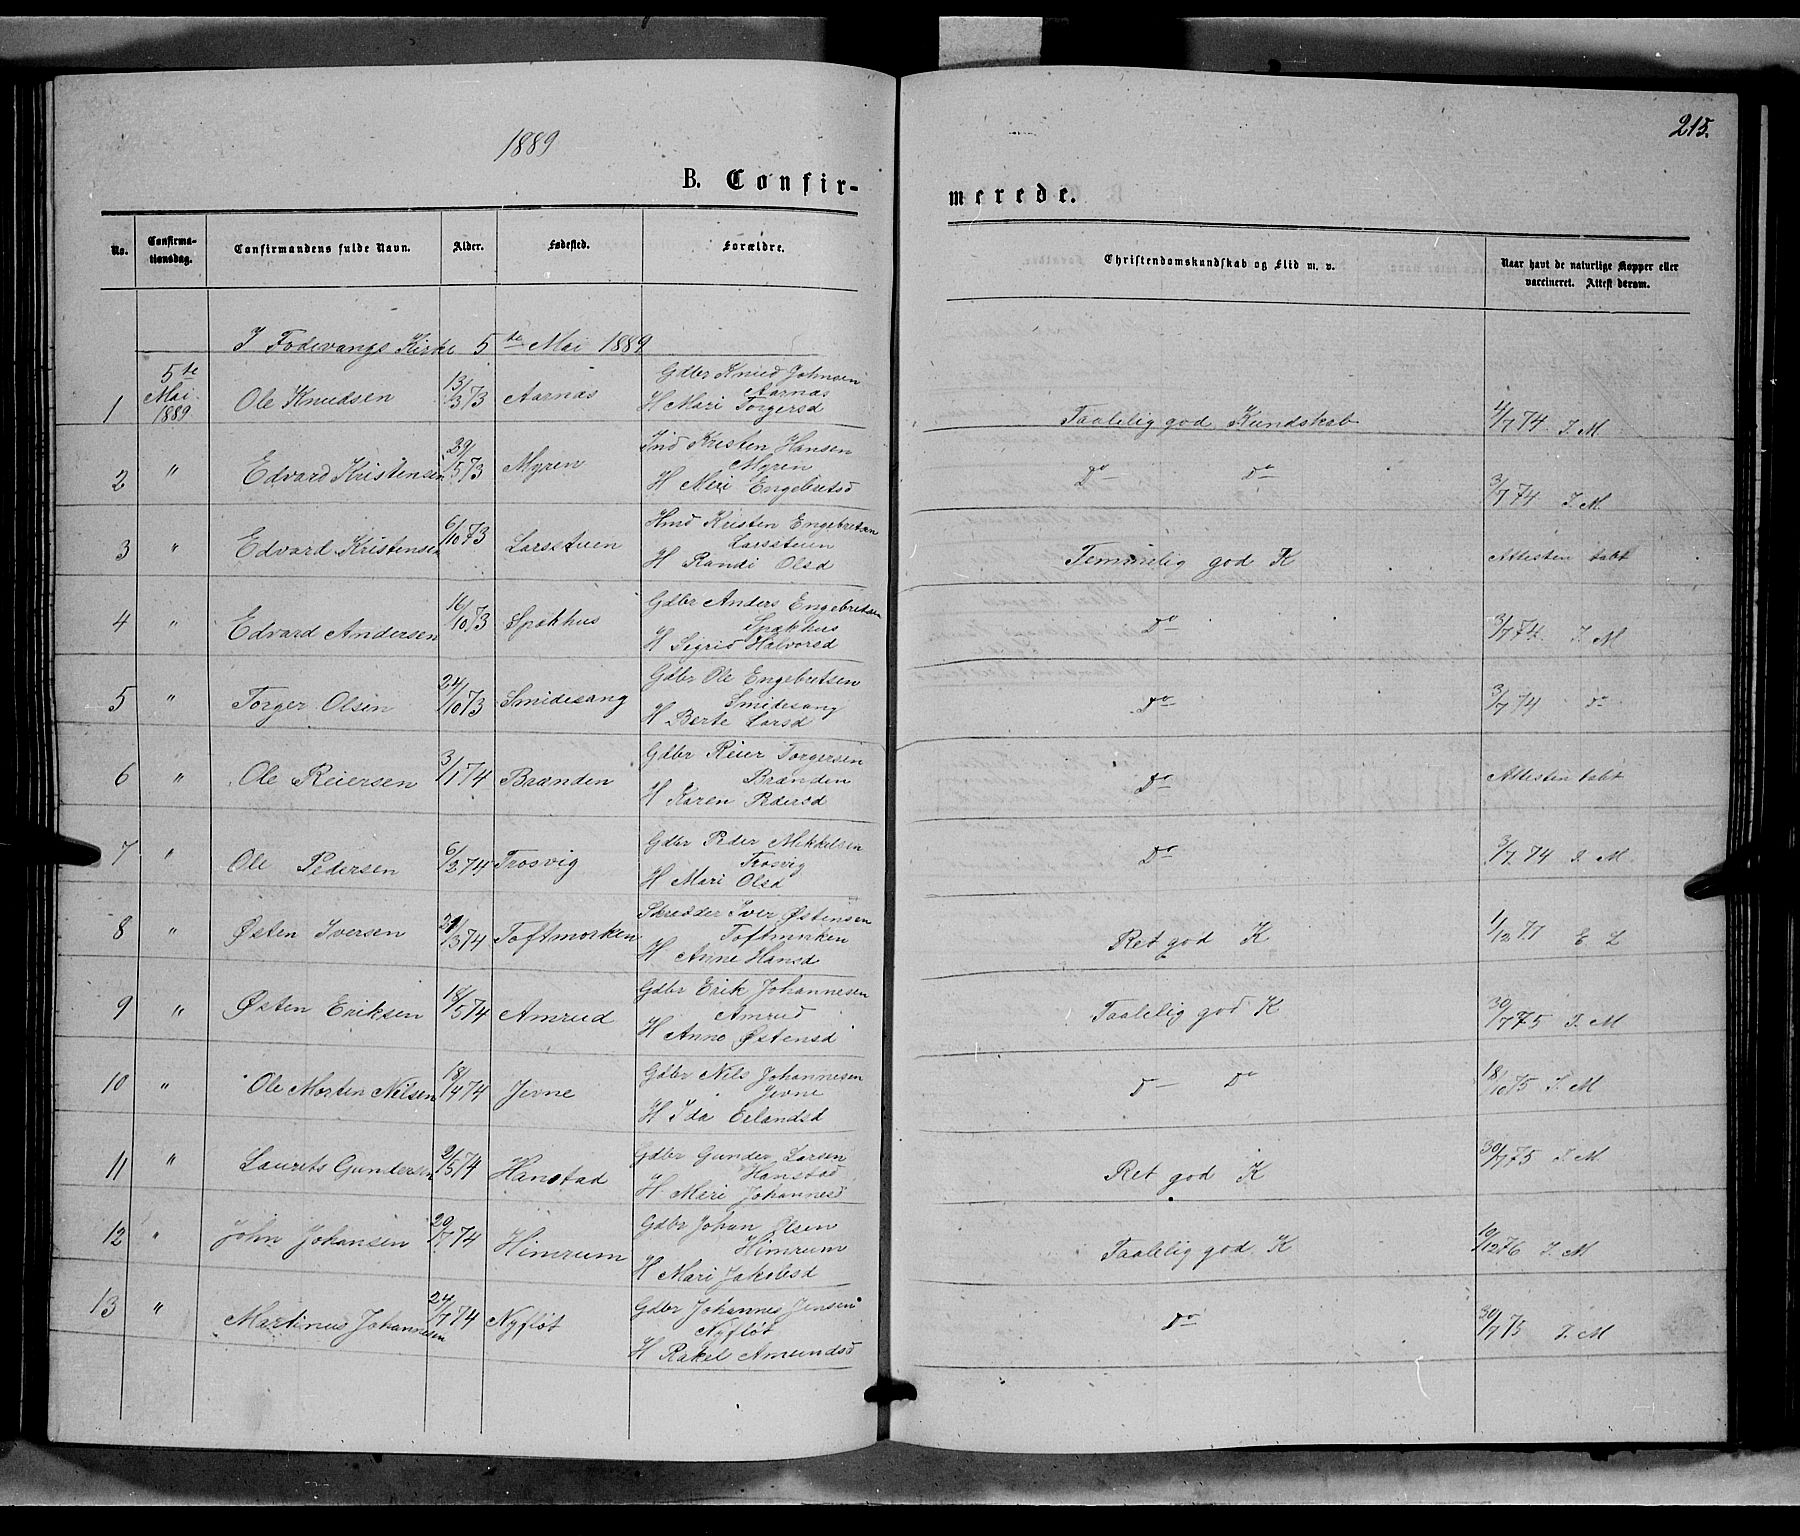 1889
215.
B. Confirmerede.
No. Confirmationsdag. Confirmandens fulde Navn. Alder. Fødested. Forældre. Christendomskundskab og Flid m. v. Naar havt de naturlige Kopper eller vaccineret. Attest derom.
I Fodevangs Kirke 5te Mai 1889
1 5te Mai 1889 Ole Knudsen 13/3 73 Aarnas Gdbr Knud Johnsen Aarnas H Mari Torgersd Taalelig god Kundskab 4/7 74 I. M
2 " Edvard Kristensen 29/5 73 Myren Ind Kristen Hansen Myren H Mari Engebretsd Do Do 3/7 74 I. M
3 " Edvard Kristensen 6/10 73 Larsstuen Hmd Kristen Engebretsen Larsstuen H Randi Olsd Temmelig god K Attesten tabt
4 " Edvard Andersen 16/10 73 Spakhus Gdbr Anders Engebretsen Spakhus H Sigrid Halvorsd Do 3/7 74 I. M
5 " Torger Olsen 24/10 73 Smidesang Gdbr Ole Engebretsen Smidesang H Berte Larsd Do 3/7 74 Do
6 " Ole Reiersen 3/1 74 Brænden Gdbr Reier Torgersen Brænden H Karen Pedersd Do Attesten tabt
7 " Ole Pedersen 6/2 74 Trosvig Gdbr Peder Mikkelsen Trosvig H Mari Olsd Do 3/7 74 I. M
8 " Østen Iversen 31/3 74 Toftmorken Skredder Iver Østensen Toftmorken H Anne Hansd Ret god K 1/12 77 E L
9 " Østen Eriksen 18/5 74 Amrud Gdbr Erik Johannesen Amrud H Anne Østensd Taalelig god K 30/7 75 I. M
10 " Ole Morten Nilsen 18/4 74 Jevne Gdbr Nils Johannesen Jevne H Ida Erlandsd D Do 18/10 75 I. M
11 " Laurits Gundersen 2/5 74 Hanstad Gdbr Gunder Larsen Hanstad H Mari Johannesd Ret god K 30/7 75 I. M
12 " John Johansen 29/7 74 Himrum Gdbr Johan Olsen Himrum H Mari Jakobsd Taalelig god K 19/12 76 I. M
13 " Martinus Johannesen 24/7 74 Nyfløt Gdbr Johannes Jensen Nyfløt H Rakel Amundsd Do 30/7 75 I. M